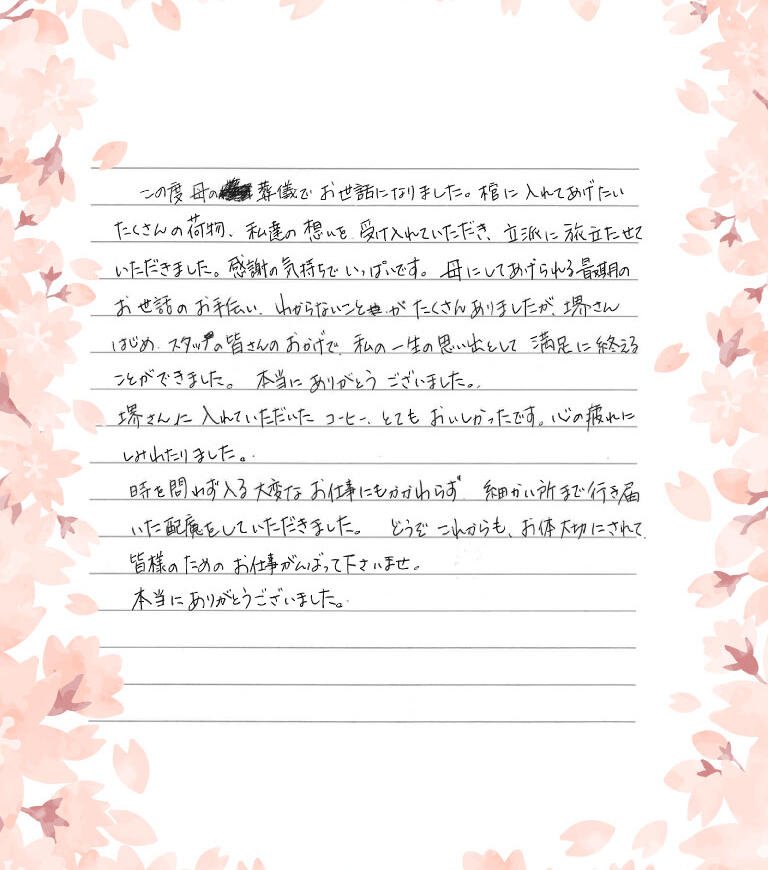 この度 母の葬儀で お世話になりました。棺に 入れてあげたい
たくさんの荷物、私達の 想いを 受け入れていただき、立派に 旅立たせて
いただきました。感謝の気持ちで いっぱいです。 母にしてあげられる 最期の
お世話の お手伝い、わからないことが たくさんありましたが、堺さん
はじめ、スタッフの皆さんの おかげで、私の 一生の思い出として 満足に 終える
ことができました。 本当に ありがとう ございました。
堺さんに 入れていただいた コーヒー、とても おいしかったです。心の疲れに
しみわたりました。
時を問わず入る 大変な お仕事にもかかわらず 細かい所まで行き届
いた 配慮をしていただきました。 どうぞ これからも、お体大切にされて、
皆様のための お仕事がんばって下さいませ。
本当に ありがとうございました。